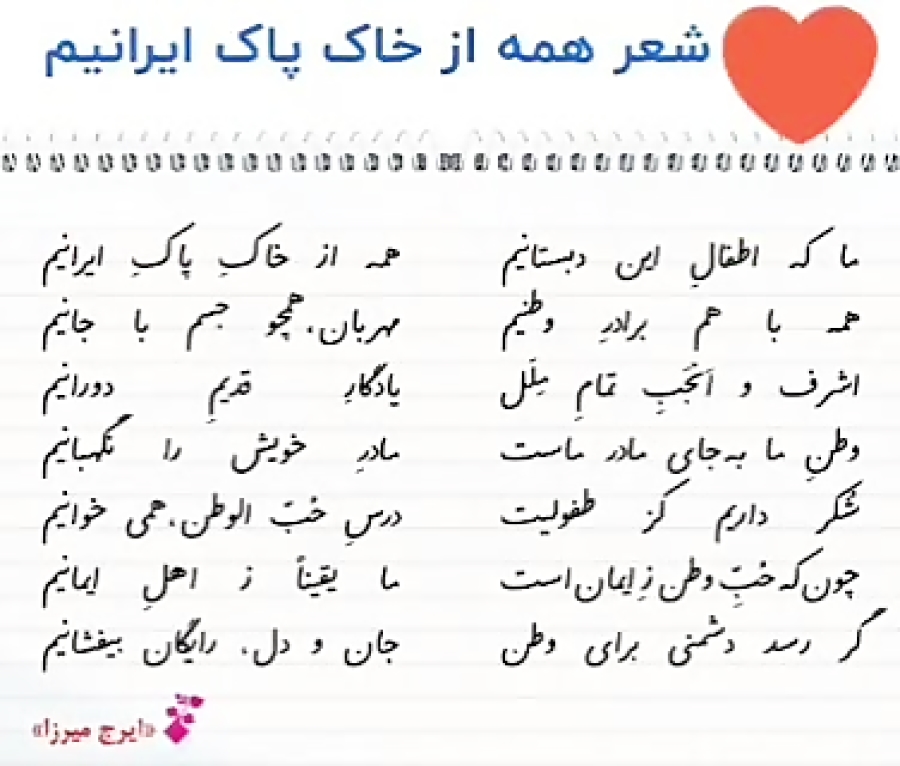 شعر همه از خاک پاک ایرانیم
ما که اطفالِ این دبستانیم همه از خاکِ پاکِ ایرانیم
همه با هم برادرِ وطنیم مهربان، همچو جسم با جانیم
اشرف و اَنجَبِ تمامِ مِلَل یادگارِ قدیمِ دورانیم
وطنِ ما به‌جای مادر ماست مادرِ خویش را نگهبانیم
شُکر داریم کز طفولیت درسِ حُبّ الوطن، همی خوانیم
چون‌که حُبِّ وطن زِ ایمان است ما یقیناً ز اهلِ ایمانیم
گر رسد دشمنی برای وطن جان و دل، رایگان بیفشانیم
«ایرج میرزا»